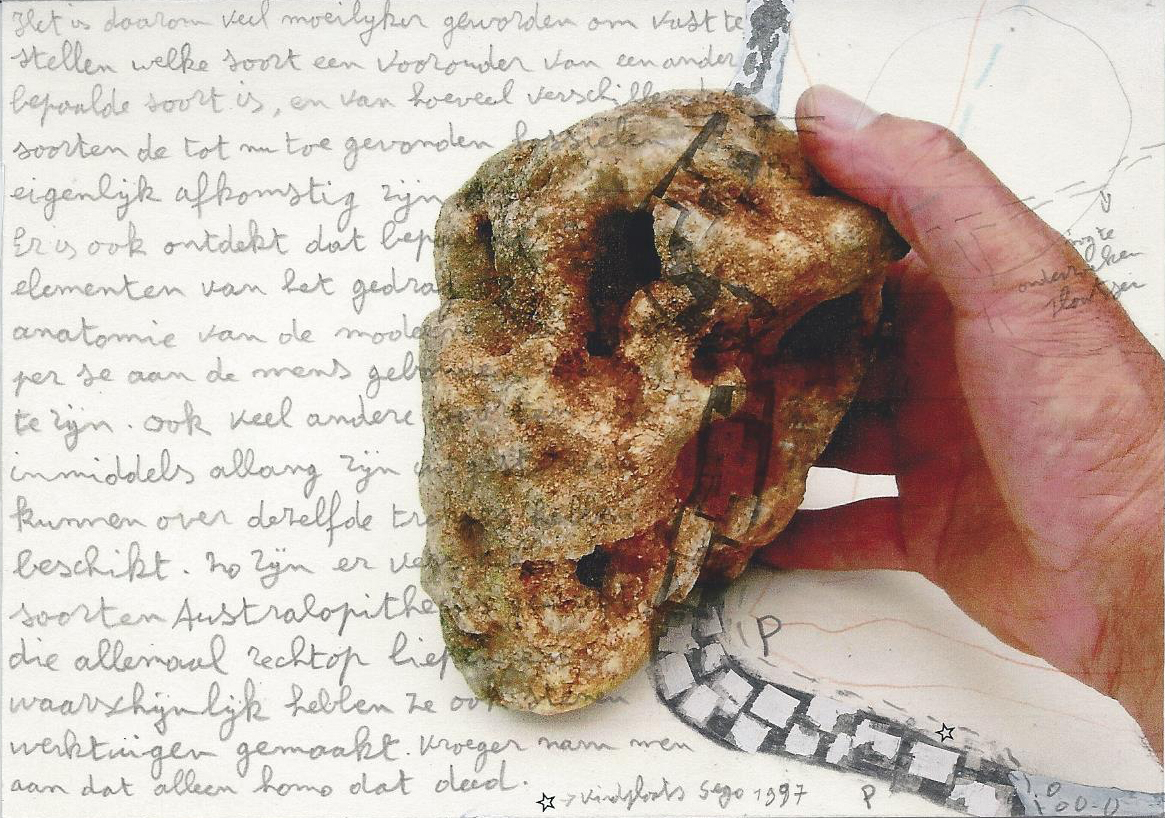 Het is daarom veel moeilijker geworden om vast te
stellen welke soort een voorouder van een ander
bepaalde soort is, en van hoeveel verschillende
soorten de tot nu toe gevonden fossielen
eigenlijk afkomstig zijn
Er is ook ontdekt dat bep
elementen van het gedra
anatomie van de moder
per se aan de mens geb
te zijn. ook veel andere
inmiddels allang zijn
kunnen over dezelfde tre
beschikt. zo zijn er ve
soorten Australopithe
die allemaal rechtop liep
waarschijnlijk hebben ze oo
werktuigen gemaakt. vroeger nam men
aan dat alleen homo dat deed.
P
vindplaats Sego 1997
P